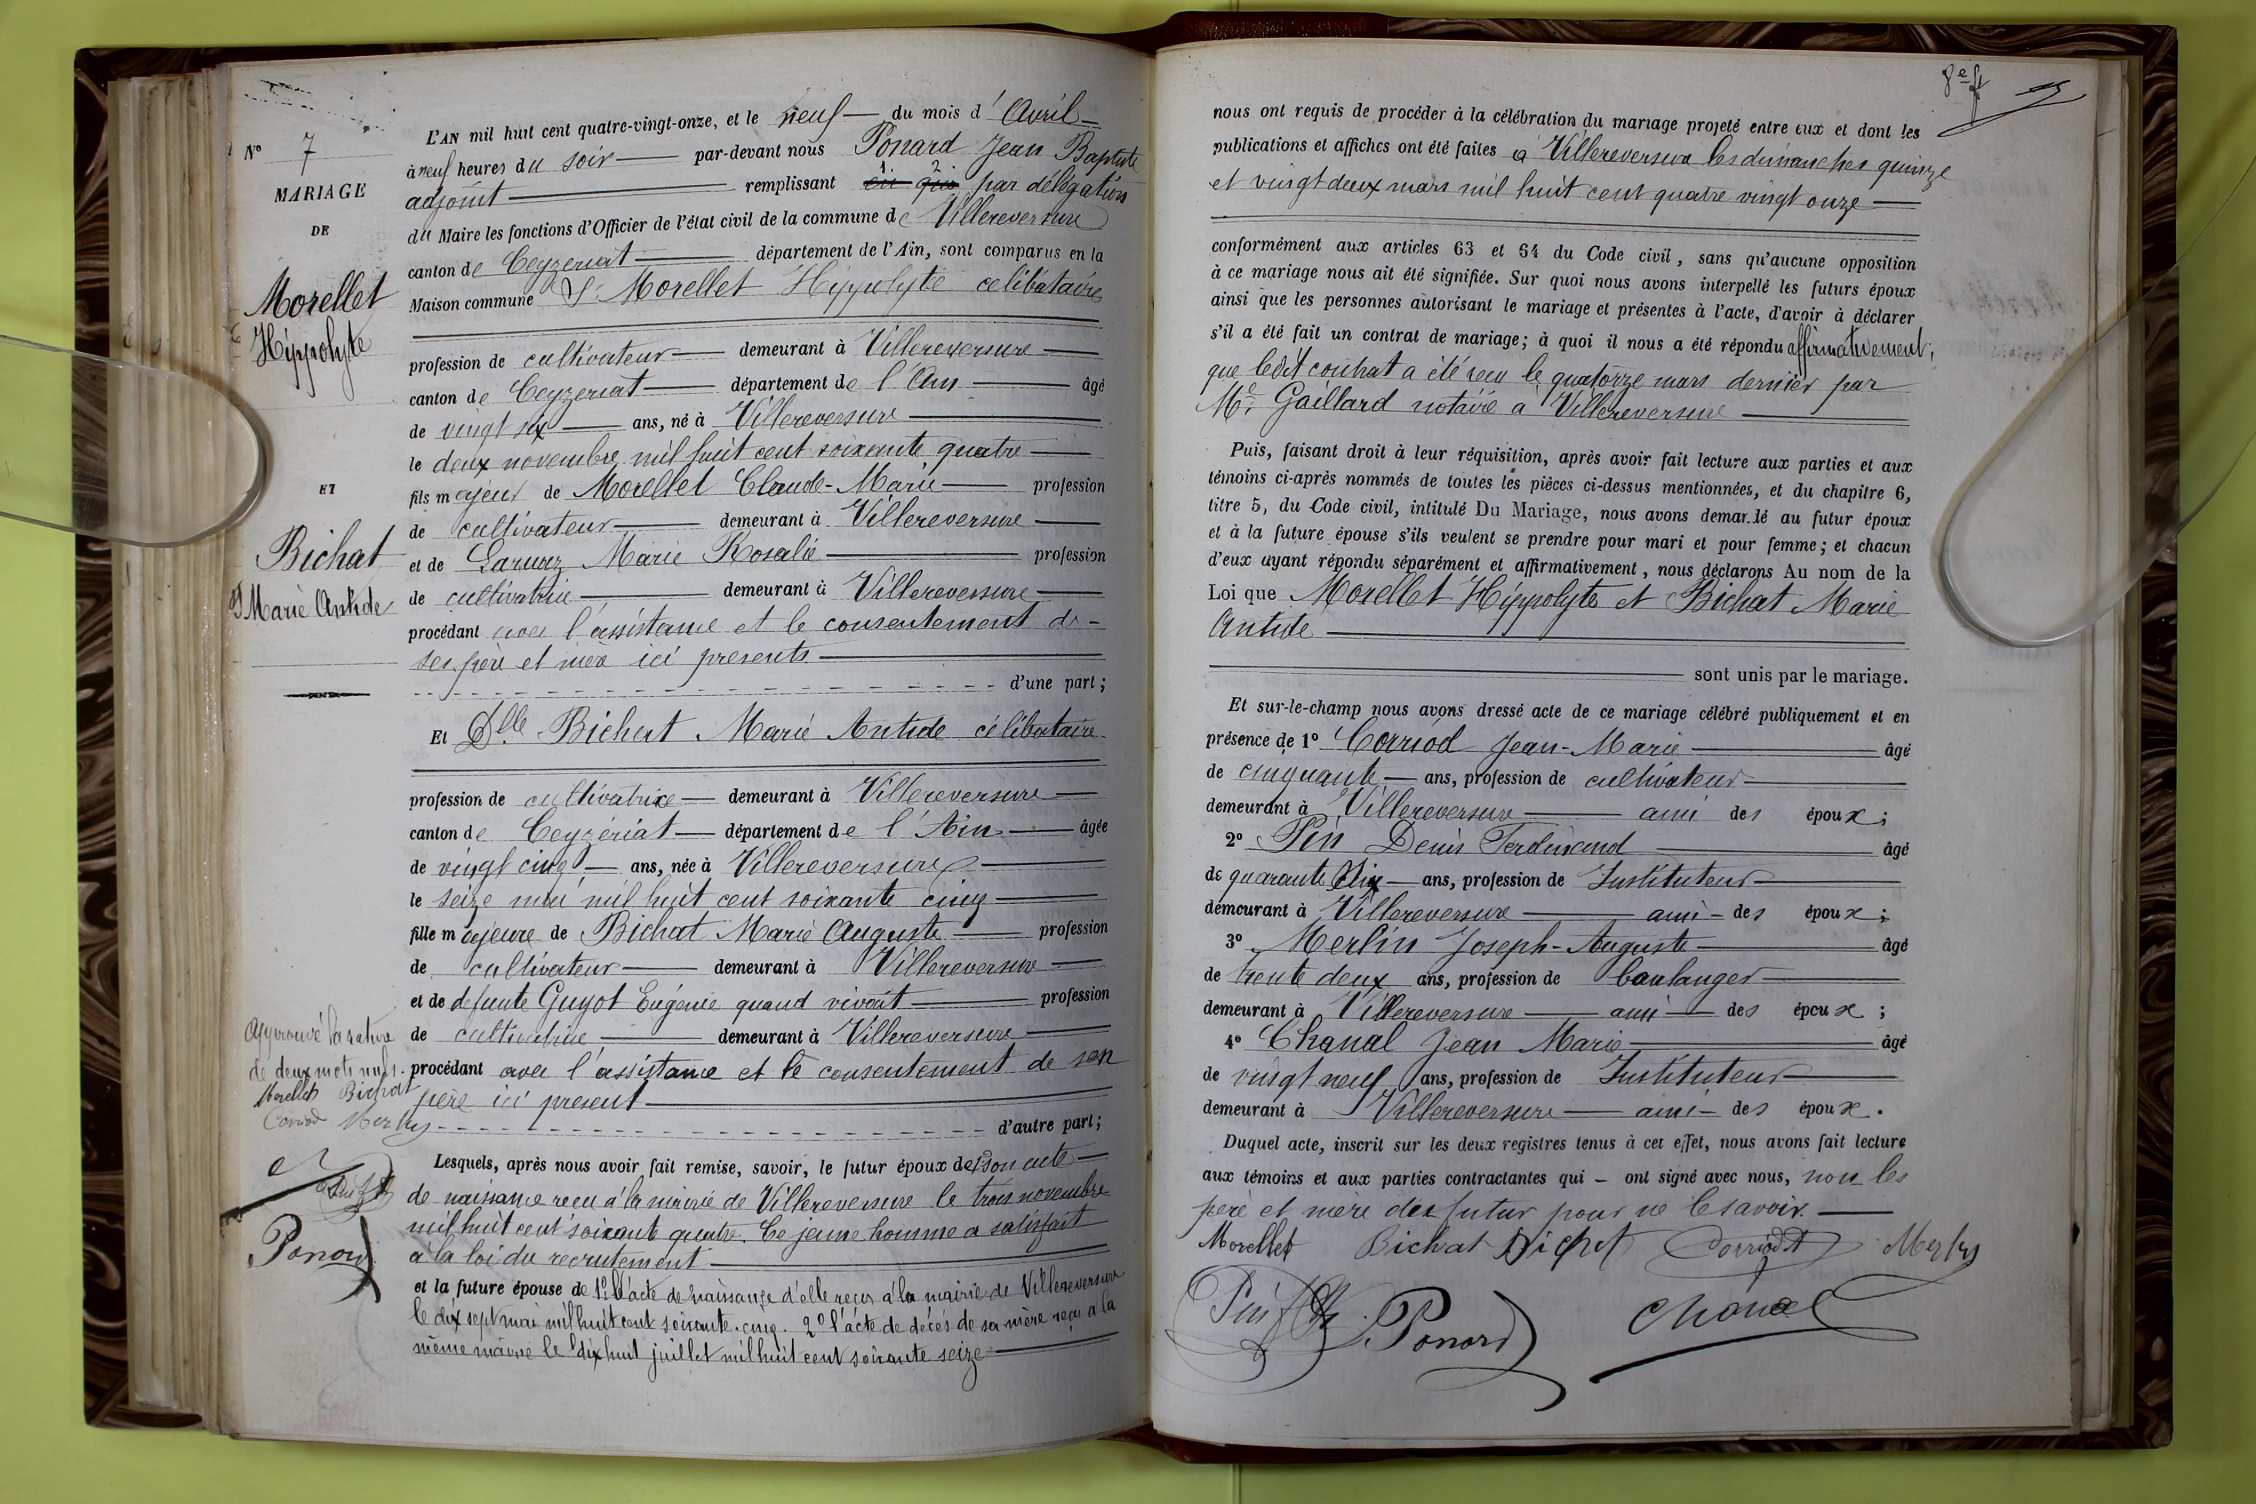 N° 7
MARIAGE
DE
Morellet
Hippolyte
ET
Bichat
Marie Antide
L'AN mil huit cent quatre-vingt-onze, et le neuf du mois d'Avril
à neuf heures du soir par-devant nous Ponard Jean Baptiste
adjoint remplissant par délégation
du Maire les fonctions d'Officier de l'état civil de la commune de Villereversure
canton de Ceyzeriat département de l'Ain, sont comparus en la
Maison commune Sr Morellet Hippolyte célibataire
profession de cultivateur demeurant à Villereversure
canton de Ceyzeriat département de l'Ain âgé
de vingt six ans, né à Villereversure
le deux novembre mil huit cent soixante quatre
fils majeur de Morellet Claude-Marie profession
de cultivateur demeurant à Villereversure
et de Marie Rosalie profession
de cultivatrice demeurant à Villereversure
procédant avec l'assistance et le consentement de
ses père et mère ici présents
d'une part;
Et Dlle Bichat Marie Antide célibataire
profession de cultivatrice demeurant à Villereversure
canton de Ceyzériat département de l'Ain âgée
de vingt cinq ans, née à Villereversure
le seize mai mil huit cent soixante cinq
fille majeure de Bichat Marie Auguste profession
de cultivateur demeurant à Villereversure
et de défunte Guyot Eugénie quand vivait profession
de cultivatrice demeurant à Villereversure
procédant avec l'assistance et le consentement de son
père ici présent
d'autre part;
Lesquels, après nous avoir fait remise, savoir, le futur époux de son acte
de naissance reçu à la mairie de Villereversure le trois novembre
mil huit cent soixante quatre. Ce jeune homme a satisfait
à la loi du recrutement
et la future épouse de 1° l'acte de naissance d'elle reçu à la mairie de Villereversure
le dix sept mai mil huit cent soixante-cinq. 2° l'acte de décès de sa mère reçu à la
même mairie le dix huit juillet mil huit cent soixante seize
Approuvé la rature
de deux mots nuls.
Morellet Bichat
Corriod Merlin
Ponard
nous ont requis de procéder à la célébration du mariage projeté entre eux et dont les
publications et affiches ont été faites à Villereversure les dimanches quinze
et vingt deux mars mil huit cent quatre vingt onze
conformément aux articles 63 et 64 du Code civil, sans qu'aucune opposition
à ce mariage nous ait été signifiée. Sur quoi nous avons interpellé les futurs époux
ainsi que les personnes autorisant le mariage et présentes à l'acte, d'avoir à déclarer
s'il a été fait un contrat de mariage; à quoi il nous a été répondu affirmativement,
que ledit contrat a été reçu le quatorze mars dernier par
Me Gaillard notaire à Villereversure
Puis, faisant droit à leur réquisition, après avoir fait lecture aux parties et aux
témoins ci-après nommés de toutes les pièces ci-dessus mentionnées, et du chapitre 6,
titre 5, du Code civil, intitulé Du Mariage, nous avons demandé au futur époux
et à la future épouse s'ils veulent se prendre pour mari et pour femme; et chacun
d'eux ayant répondu séparément et affirmativement, nous déclarons Au nom de la
Loi que Morellet Hippolyte et Bichat Marie
Antide
sont unis par le mariage.
Et sur-le-champ nous avons dressé acte de ce mariage célébré publiquement et en
présence de 1° Corriod Jean-Marie âgé
de cinquante ans, profession de cultivateur
demeurant à Villereversure ami des époux;
2° Pin Denis Ferdinand âgé
de quarante ans, profession de Instituteur
demeurant à Villereversure ami des époux;
3° Merlin Joseph-Auguste âgé
de trente deux ans, profession de boulanger
demeurant à Villereversure ami des époux;
4° Chanal Jean Marie âgé
de vingt neuf ans, profession de Instituteur
demeurant à Villereversure ami des époux.
Duquel acte, inscrit sur les deux registres tenus à cet effet, nous avons fait lecture
aux témoins et aux parties contractantes qui ont signé avec nous, non les
père et mère du futur pour ne le savoir.
Morellet Bichat Bichat Corriod Merlin
Pin Ponard Chanal